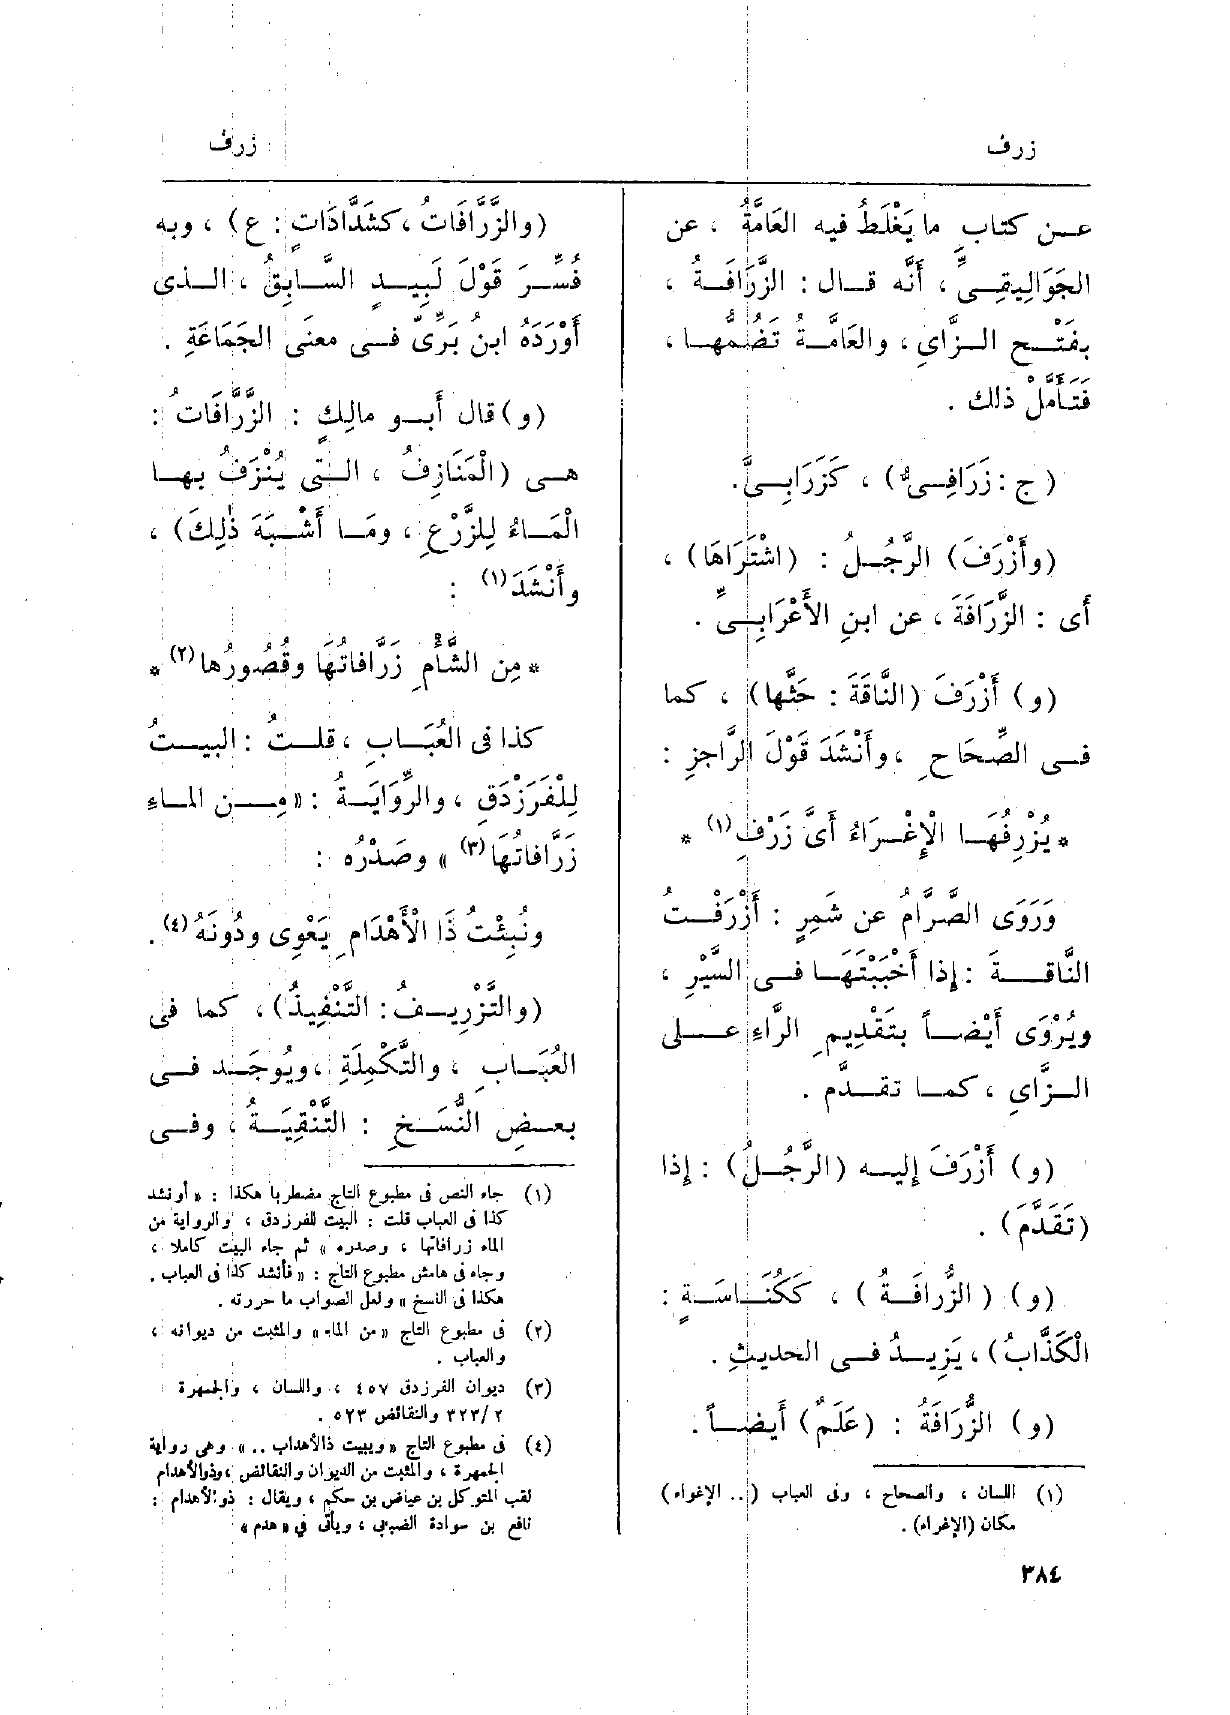 زرف
زرف
عـن كتابِ ما يَغْلَطُ فيه العَامَّةُ ، عن
الجَوَالِيقِـىِّ ، أَنَّه قـال : الزَّرَافَـةُ ،
بفَتْـح الـزَّاىِ ، والعَامَّـةُ تَضُمُّهـا ،
فَتَأَمَّلْ ذلك .
( ج : زَرَافِـىُّ ) ، كَزَرَابِـىَّ .
(وأَزْرَفَ) الرَّجُـلُ : (اشْتَرَاهَا) ،
أى : الزَّرَافَةَ ، عن ابنِ الأَعْرَابِـىِّ .
(و) أَزْرَفَ (النَّاقَةَ : حَثَّها) ، كما
فـى الصِّحَاحِ ، وأَنْشَدَ قَوْلَ الرَّاجِزِ :
* يُزْرِفُهَـا الْإِغْـرَاءُ أَىَّ زَرْفِ (١) *
وَرَوَى الصَّرَّامُ عن شَمِرٍ : أَزْرَفْـتُ
النَّاقـةَ : إذا أَخْبَبْتَهَـا فـى السَّيْرِ ،
ويُرْوَى أَيْضـاً بتَقْدِيمِ الرَّاءِ علـى
الـزَّاىِ ، كمـا تقـدَّم .
(و) أَزْرَفَ إليـه (الرَّجُـلُ) : إذا
(تَقَدَّمَ) .
(و) (الزُّرافَـةُ ) ، كَكُنَـاسَـةٍ :
الْكَذَّابُ) ، يَزِيـدُ فـى الحديثِ .
(و) الزُّرَافَةُ : (عَلَمٌ) أَيضـاً .
(١) اللسان ، والصحاح ، وفى العباب (.. الإغواء)
مكان (الإغراء) .
(والزَّرَّافَاتُ ، كَشَدَّادَاتٍ : ع) ، وبه
فُسِّـرَ قَوْلُ لَبِيـدٍ السَّـابِقُ ، الـذى
أَوْرَدَهُ ابنُ بَرِّىّ فـى معنَى الجَمَاعَةِ .
(و) قال أَبـو مالِكٍ : الزَّرَّافَاتُ :
هـى (الْمَنَازِفُ ، التـى يُنْزَفُ بهـا
الْمَـاءُ لِلزَّرْعِ ، ومَـا أَشْبَهَ ذٰلِكَ) ،
وأَنْشَدَ (١) :
* مِن الشَّأْمِ زَرَّافاتُهَا وقُصُورُها (٢) *
كذا فى العُبَـابِ ، قلـتُ : البيـتُ
لِلْفَرَزْدَقِ ، والرِّوَايَـةُ : « مِـن المـاءِ
زَرَّافاتُهَا (٣) » وصَدْرُه :
ونُبِئْتُ ذَا الْأَهْدَامِ يَعْوِى ودُونَهُ (٤) .
(والتَّزْرِيـفُ : التَّنْفِيذُ) ، كما فى
العُبَـابِ ، والتَّكْمِلَةِ ، ويُوجَـد فـى
بعـضِ النُّسَـخِ : التَّنْقِيَـةُ ، وفـى
(١) جاء النص فى مطبوع التاج مضطربا هكذا : « أونشد
كذا فى العباب قلت : البيت للفرزدق ، والرواية من
الماء زرافاتها ، وصدره » ثم جاء البيت كاملا ،
وجاء فى هامش مطبوع التاج : « فأنشد كذا فى العباب .
هكذا فى النسخ » ولعل الصواب ما حررته .
(٢) فى مطبوع التاج « من الماء » والمثبت من ديوانه ،
والعباب .
(٣) ديوان الفرزدق ٤٥٧ ، واللسان ، والجمهرة
٣٢٣/٢ والنقائض ٥٢٣ .
(٤) فى مطبوع التاج « ويبيت ذالأهداب .. » وهى رواية
الجمهرة ، والمثبت من الديوان والنقائض ، وذوالأهدام
لقب المتوكل بن عياض بن حكم ، ويقال : ذوالأهدام :
نافع بن سوادة الضبى ، ويأتى في « هدم »
٣٨٤